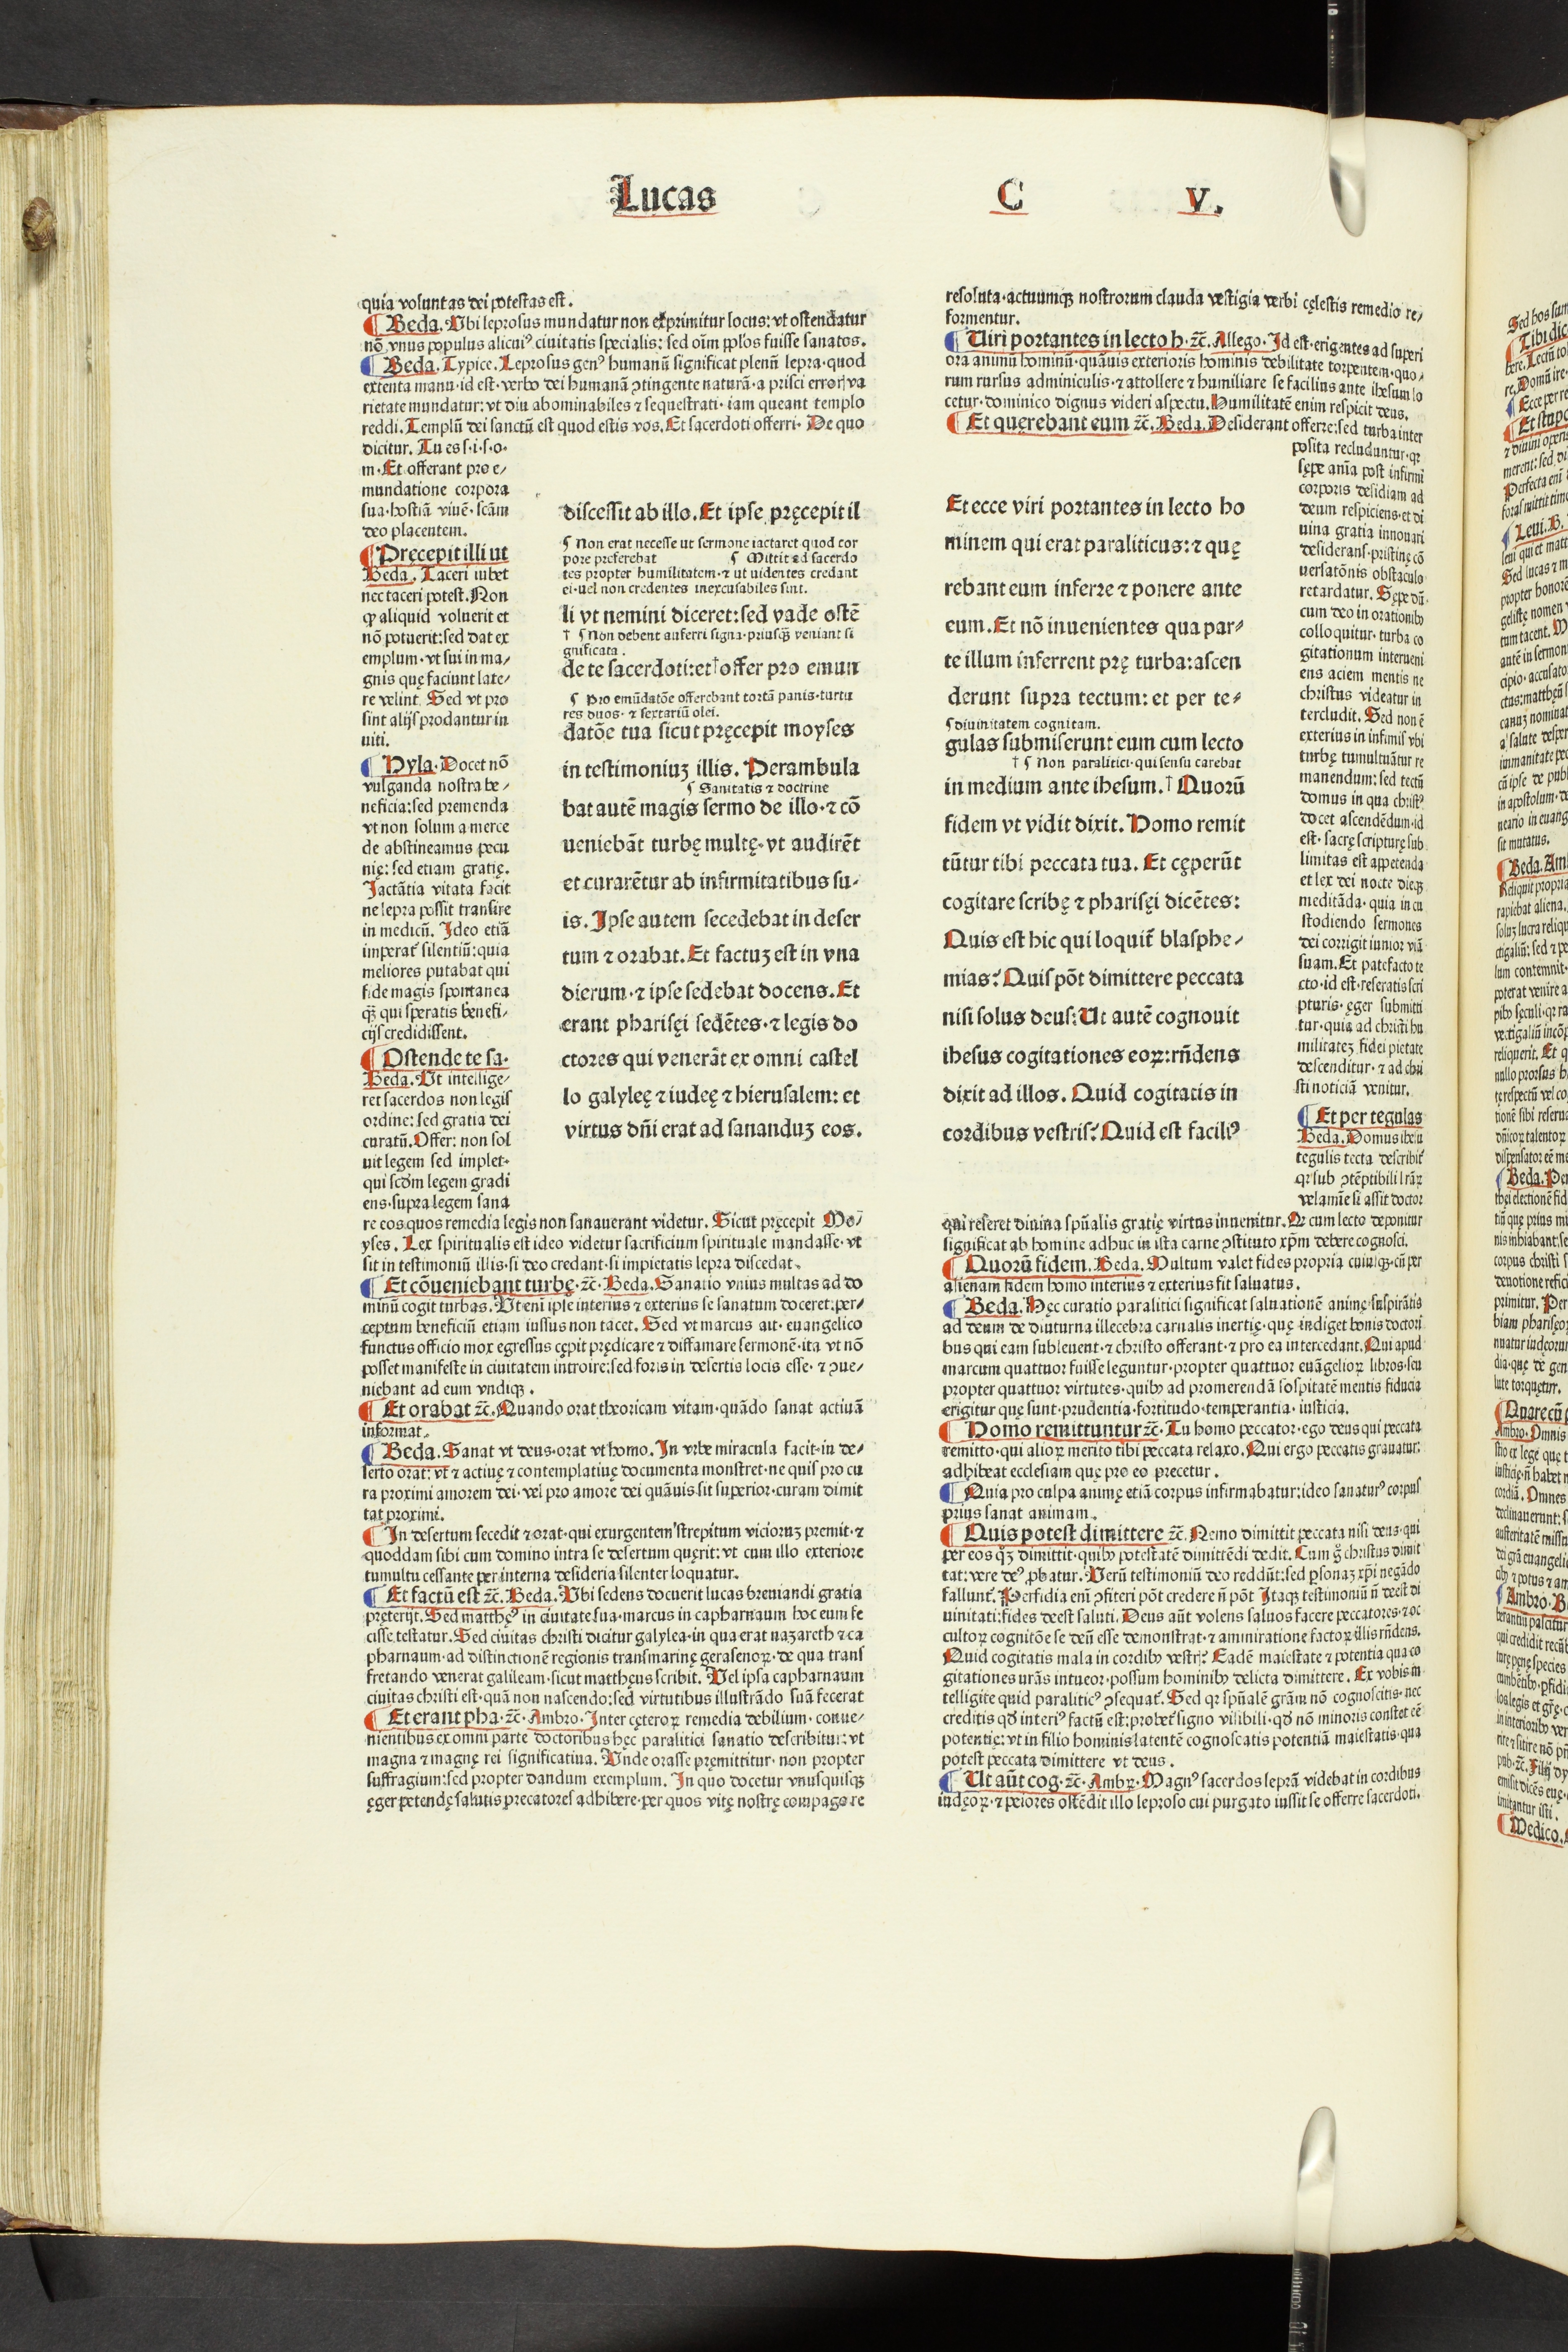 Lucas C V.
quia voluntas dei potestas est.
¶ Beda. Vbi leprosus mundatur non exprimitur locus: vt ostendatur
nõ vnus populus alicuiꝰ ciuitatis specialis: sed oīm pplos fuisse sanatos.
¶ Beda. Typice. Leprosus genꝰ humanū significat plenū lepra·quod
extenta manu·id est·verbo dei humanā ꝯtingente naturā·a prisci erroris va
rietate mundatur: vt diu abominabiles ⁊ sequestrati·iam queant templo
reddi. Templū dei sanctū est quod estis vos. Et sacerdoti offerri· De quo
dicitur. Tu es s·i·s·o·
m·Et offerant pro e/
mundatione corpora
sua·hostiā viuē·scām
deo placentem.
¶ Pręcepit illi ut
Beda. Taceri iubet
nec taceri potest. Non
ꝙ aliquid voluerit et
nõ potuerit: sed dat ex
emplum·vt sui in ma/
gnis quę faciunt late/
re velint. Sed vt pro
sint alijs prodantur in
uiti.
¶ Hyla·Docet nõ
vulganda nostra be/
neficia: sed premenda
vt non solum a merce
de abstineamus pecu
nię: sed etiam gratię.
Jactātia vitata facit
ne lepra possit transire
in medicū. Ideo etiā
imperat̃ silentiū: quia
meliores putabat qui
fide magis spontanea
ꝙ̃ qui speratis benefi/
cijs credidissent.
¶ Ostende te sa·
Beda. Vt intellige/
ret sacerdos non legis
ordine: sed gratia dei
curatū. Offer: non sol
uit legem sed implet·
qui scd̃m legem gradi
ens·supra legem sana
re eos quos remedia legis non sanauerant videtur. Sicut pręcepit Mo/
yses. Lex spiritualis est ideo videtur sacrificium spirituale mandasse·vt
sit in testimoniū illis·si deo credant·si impietatis lepra discedat.
¶ Et cōueniebant turbę·⁊c̃·Beda. Sanatio vnius multas ad do
minū cogit turbas. Vt enī ipse interius ⁊ exterius se sanatum doceret: per/
ceptum beneficiū etiam iussus non tacet. Sed vt marcus ait·euangelico
functus officio mox egressus cępit prędicare ⁊ diffamare sermonē·ita vt nõ
posset manifeste in ciuitatem introire: sed foris in desertis locis esse·⁊ ꝯue/
niebant ad eum vndiqꝫ.
¶ Et orabat ⁊c̃. Quando orat theoricam vitam·quādo sanat actiuā
informat.
¶ Beda. Sanat vt deus·orat vt homo. In vrbe miracula facit·in de/
serto orat: vt ⁊ actiuę ⁊ contemplatiuę documenta monstret·ne quis pro cu
ra proximi amorem dei·vel pro amore dei quāuis sit superior·curam dimit
tat proximi.
¶ In desertum secedit ⁊ orat·qui exurgentem strepitum vicioruꝫ premit·⁊
quoddam sibi cum domino intra se desertum quęrit: vt cum illo exteriore
tumultu cessante per interna desideria silenter loquatur.
¶ Et factū est ⁊c̃. Beda. Vbi sedens docuerit lucas breuiandi gratia
pręterijt. Sed matthęꝰ in ciuitate sua·marcus in capharnaum hoc eum fe
cisse testatur. Sed ciuitas christi dicitur galylea·in qua erat naꝫareth ⁊ ca
pharnaum·ad distinctionē regionis transmarinę gerasenoꝝ·de qua trans
fretando venerat galileam·sicut mattheus scribit. Vel ipsa capharnaum
ciuitas christi est·quā non nascendo: sed virtutibus illustrādo suā fecerat
¶ Et erant pha·⁊c̃·Ambro. Inter cęteroꝝ remedia debilium·conue/
nientibus ex omni parte doctoribus hęc paralitici sanatio describitur: vt
magna ⁊ magnę rei significatiua. Vnde orasse pręmittitur·non propter
suffragium: sed propter dandum exemplum. In quo docetur vnusquisqꝫ
ęger petendę salutis precatores adhibere·per quos vitę nostrę compago re
discessit ab illo. Et ipse pręcepit il
¶ Non erat necesse ut sermone iactaret quod cor
pore preferebat ¶ Mittit ad sacerdo
tes propter humilitatem·⁊ ut uidentes credant
ei·uel non credentes inexcusabiles sint.
li vt nemini diceret: sed vade ostē
† ¶ Non debent auferri signa·priusqꝫ̃ veniant si
gnificata.
de te sacerdoti: et† offer pro emun
¶ Pro emūdatōe offerebant tortā panis·turtu
res duos·⁊ sextariū olei.
datōe tua sicut pręcepit moyses
in testimoniuꝫ illis. Perambula
¶ Sanitatis ⁊ doctrine
bat autē magis sermo de illo·⁊ cō
ueniebāt turbę multę·vt audirēt
et curarētur ab infirmitatibus su/
is. Ipse autem secedebat in deser
tum ⁊ orabat. Et factuꝫ est in vna
dierum·⁊ ipse sedebat docens. Et
erant pharisęi sedētes·⁊ legis do
ctores qui venerāt ex omni castel
lo galyleę ⁊ iudeę ⁊ hierusalem: et
virtus dn̄i erat ad sananduꝫ eos.
resoluta·actuumqꝫ nostrorum clauda vestigia verbi cęlestis remedio re/
formentur.
¶ Uiri portantes in lecto h·⁊c̃. Allego·Id est·erigentes ad superi
ora animū hominū·quāuis exterioris hominis debilitate torpentem·quo/
rum rursus adminiculis·⁊ attollere ⁊ humiliare se facilius ante ihesum lo
cetur·dominico dignus videri aspectu. Humilitatē enim respicit deus.
¶ Et quęrebant eum ⁊c̃. Beda. Desiderant offerre: sed turba inter
posita recluduntur·qꝛ
sępe anīa post infirmi
corporis desidiam ad
deum respiciens·et di
uina gratia innouari
desiderans·pristinę cō
uersatōnis obstaculo
retardatur. Sępe dū
cum deo in orationibꝰ
colloquitur·turba co
gitationum interueni
ens aciem mentis ne
christus videatur in
tercludit. Sed non ē
exterius in infimis vbi
turbę tumultuātur re
manendum: sed tectū
domus in qua christꝰ
docet ascendēdum·id
est·sacrę scripturę sub
limitas est appetenda
et lex dei nocte dieqꝫ
meditāda·quia in cu
stodiendo sermones
dei corrigit iunior viā
suam. Et patefacto te
cto·id est·reseratis scri
pturis·ęger submitti
tur·quia ad christi hu
militateꝫ fidei pietate
descenditur·⁊ ad chri
sti noticiā venitur.
¶ Et per tegulas
Beda. Domus ihesu
tegulis tecta describit̃
qꝛ sub ꝯtēptibili lr̄aꝝ
velamīe si assit doctor
qui reseret diuina spūalis gratię virtus inuenitur. Qꝛ cum lecto deponitur
significat ab homine adhuc in ista carne ꝯstituto xp̄m debere cognosci.
¶ Quorū fidem. Beda. Multum valet fides propria cuiusqꝫ·cū per
alienam fidem homo interius ⁊ exterius fit saluatus.
¶ Beda. Hęc curatio paralitici significat saluationē animę·suspirātis
ad deum de diuturna illecebra carnalis inertię·quę indiget bonis doctori
bus qui eam subleuent·⁊ christo offerant·⁊ pro ea intercedant. Qui apud
marcum quattuor fuisse leguntur·propter quattuor euāgelioꝝ libros·seu
propter quattuor virtutes·quibꝰ ad promerendā sospitatē mentis fiducia
erigitur quę sunt·prudentia·fortitudo·temperantia·iusticia.
¶ Homo remittuntur ⁊c̃. Tu homo peccator·ego deus qui peccata
remitto·qui alioꝝ merito tibi peccata relaxo. Qui ergo peccatis grauatur:
adhibeat ecclesiam quę pro eo precetur.
¶ Quia pro culpa animę etiā corpus infirmabatur: ideo sanaturꝰ corpus
prius sanat animam.
¶ Quis potest dimittere ⁊c̃. Nemo dimittit peccata nisi deus·qui
per eos qꝫ̃ dimittit·quibꝰ potestatē dimittēdi dedit. Cum g̃ christus dimit
tat: vere deꝰ ꝓbatur. Verū testimoniū deo reddūt: sed ꝑsonaꝫ xp̄i negādo
fallunt̃. Perfidia enī ꝯfiteri põt credere n̄ põt Itaqꝫ testimoniū n̄ deest di
uinitati: fides deest saluti. Deus aūt volens saluos facere peccatores·⁊ oc
cultoꝝ cognitōe se deū esse demonstrat·⁊ amiratione factoꝝ illis rn̄dens.
Quid cogitatis mala in cordibꝰ vestris? Eadē maiestate ⁊ potentia qua co
gitationes ur̄as intueor·possum hominibꝰ delicta dimittere. Ex vobis in
telligite quid paraliticꝰ ꝯsequat̃. Sed qꝛ spūalē gr̄am nõ cognoscitis·nec
creditis qd̃ interiꝰ factū est: probet̃ signo visibili·qd̃ nõ minoris constet eē
potentię: vt in filio hominis latentē cognoscatis potentiā maiestatis·qua
potest peccata dimittere vt deus.
¶ Ut aūt cog·⁊c̃·Ambꝛ·Magnꝰ sacerdos leprā videbat in cordibus
iudęoꝝ·⁊ peiores ostēdit illo leproso cui purgato iussit se offerre sacerdoti.
Et ecce viri portantes in lecto ho
minem qui erat paraliticus: ⁊ quę
rebant eum inferre ⁊ ponere ante
eum. Et nõ inuenientes qua par/
te illum inferrent prę turba: ascen
derunt supra tectum: et per te/
¶ diuinitatem cognitam.
gulas submiserunt eum cum lecto
† ¶ Non paralitici·qui sensu carebat
in medium ante ihesum.† Quorū
fidem vt vidit dixit. Homo remit
tūtur tibi peccata tua. Et cępeūt
cogitare scribę ⁊ pharisęi dicētes:
Quis est hic qui loquit̃ blasphe/
mias? Quis põt dimittere peccata
nisi solus deus? Ut autē cognouit
ihesus cogitationes eoꝝ: rn̄dens
dixit ad illos. Quid cogitatis in
cordibus vestris? Quid est faciliꝰ